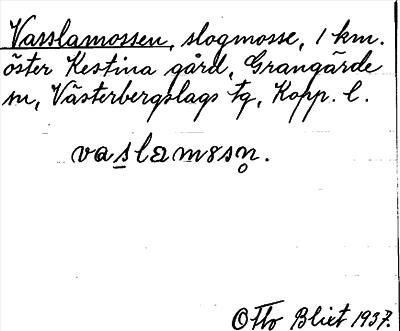 Vasslamossen, slogmosse, 1 km.
öster Kestina gård, Grangärde
sn, Västerbergslags tg, Kopp. l.
vas̲lamɘsn̥.
Otto Blixt 1937.